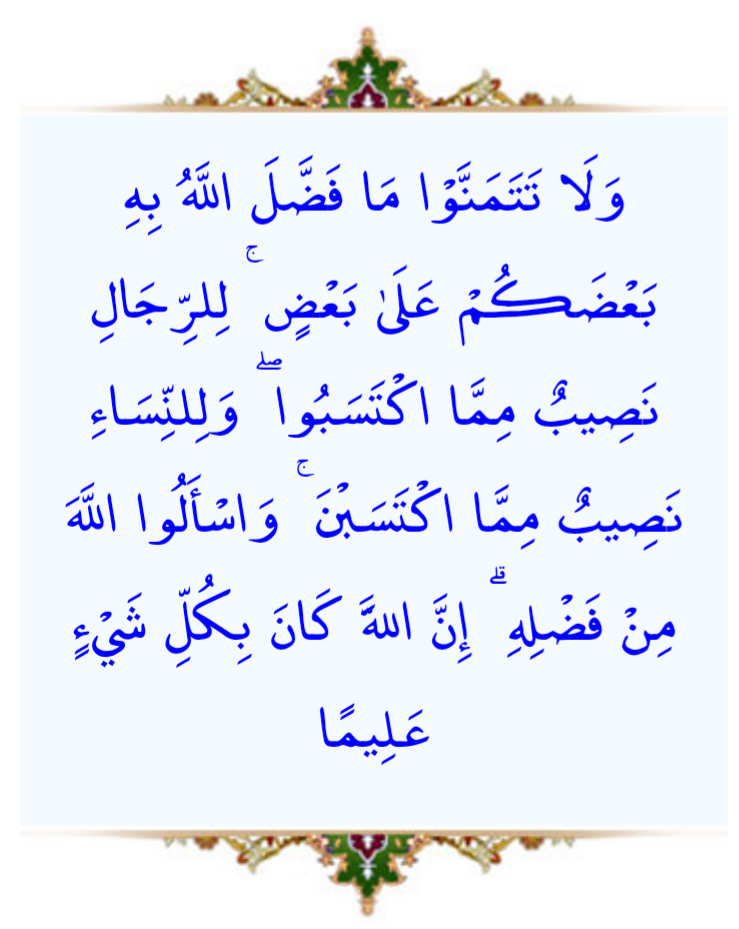 وَلَا تَتَمَنَّوْا مَا فَضَّلَ اللَّهُ بِهِ
بَعْضَكُمْ عَلَىٰ بَعْضٍ ۚ لِلرِّجَالِ
نَصِيبٌ مِمَّا اكْتَسَبُوا ۖ وَلِلنِّسَاءِ
نَصِيبٌ مِمَّا اكْتَسَبْنَ ۚ وَاسْأَلُوا اللَّهَ
مِنْ فَضْلِهِ ۗ إِنَّ اللَّهَ كَانَ بِكُلِّ شَيْءٍ
عَلِيمًا